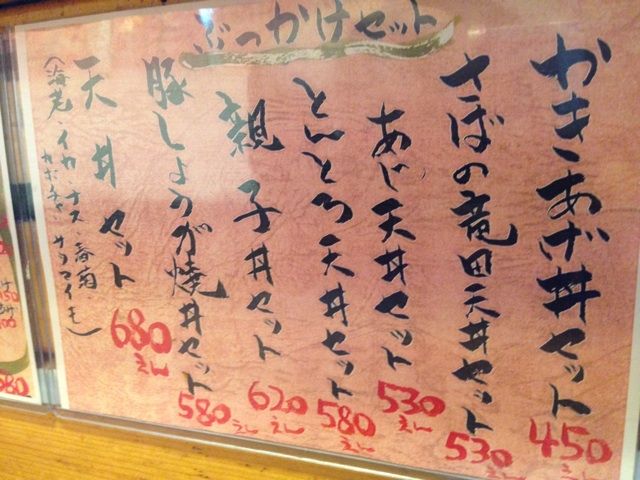 ぶっかけセット
かきあげ丼セット
450えん
さばの竜田天丼セット
530えん
あじ天丼セット
530えん
とんとろ天丼セット
580えん
親子丼セット
620えん
豚しょうが焼丼セット
580えん
天丼セット
680えん
(海老・イカ・ナス・春菊・
カボチャ・サツマイモ)